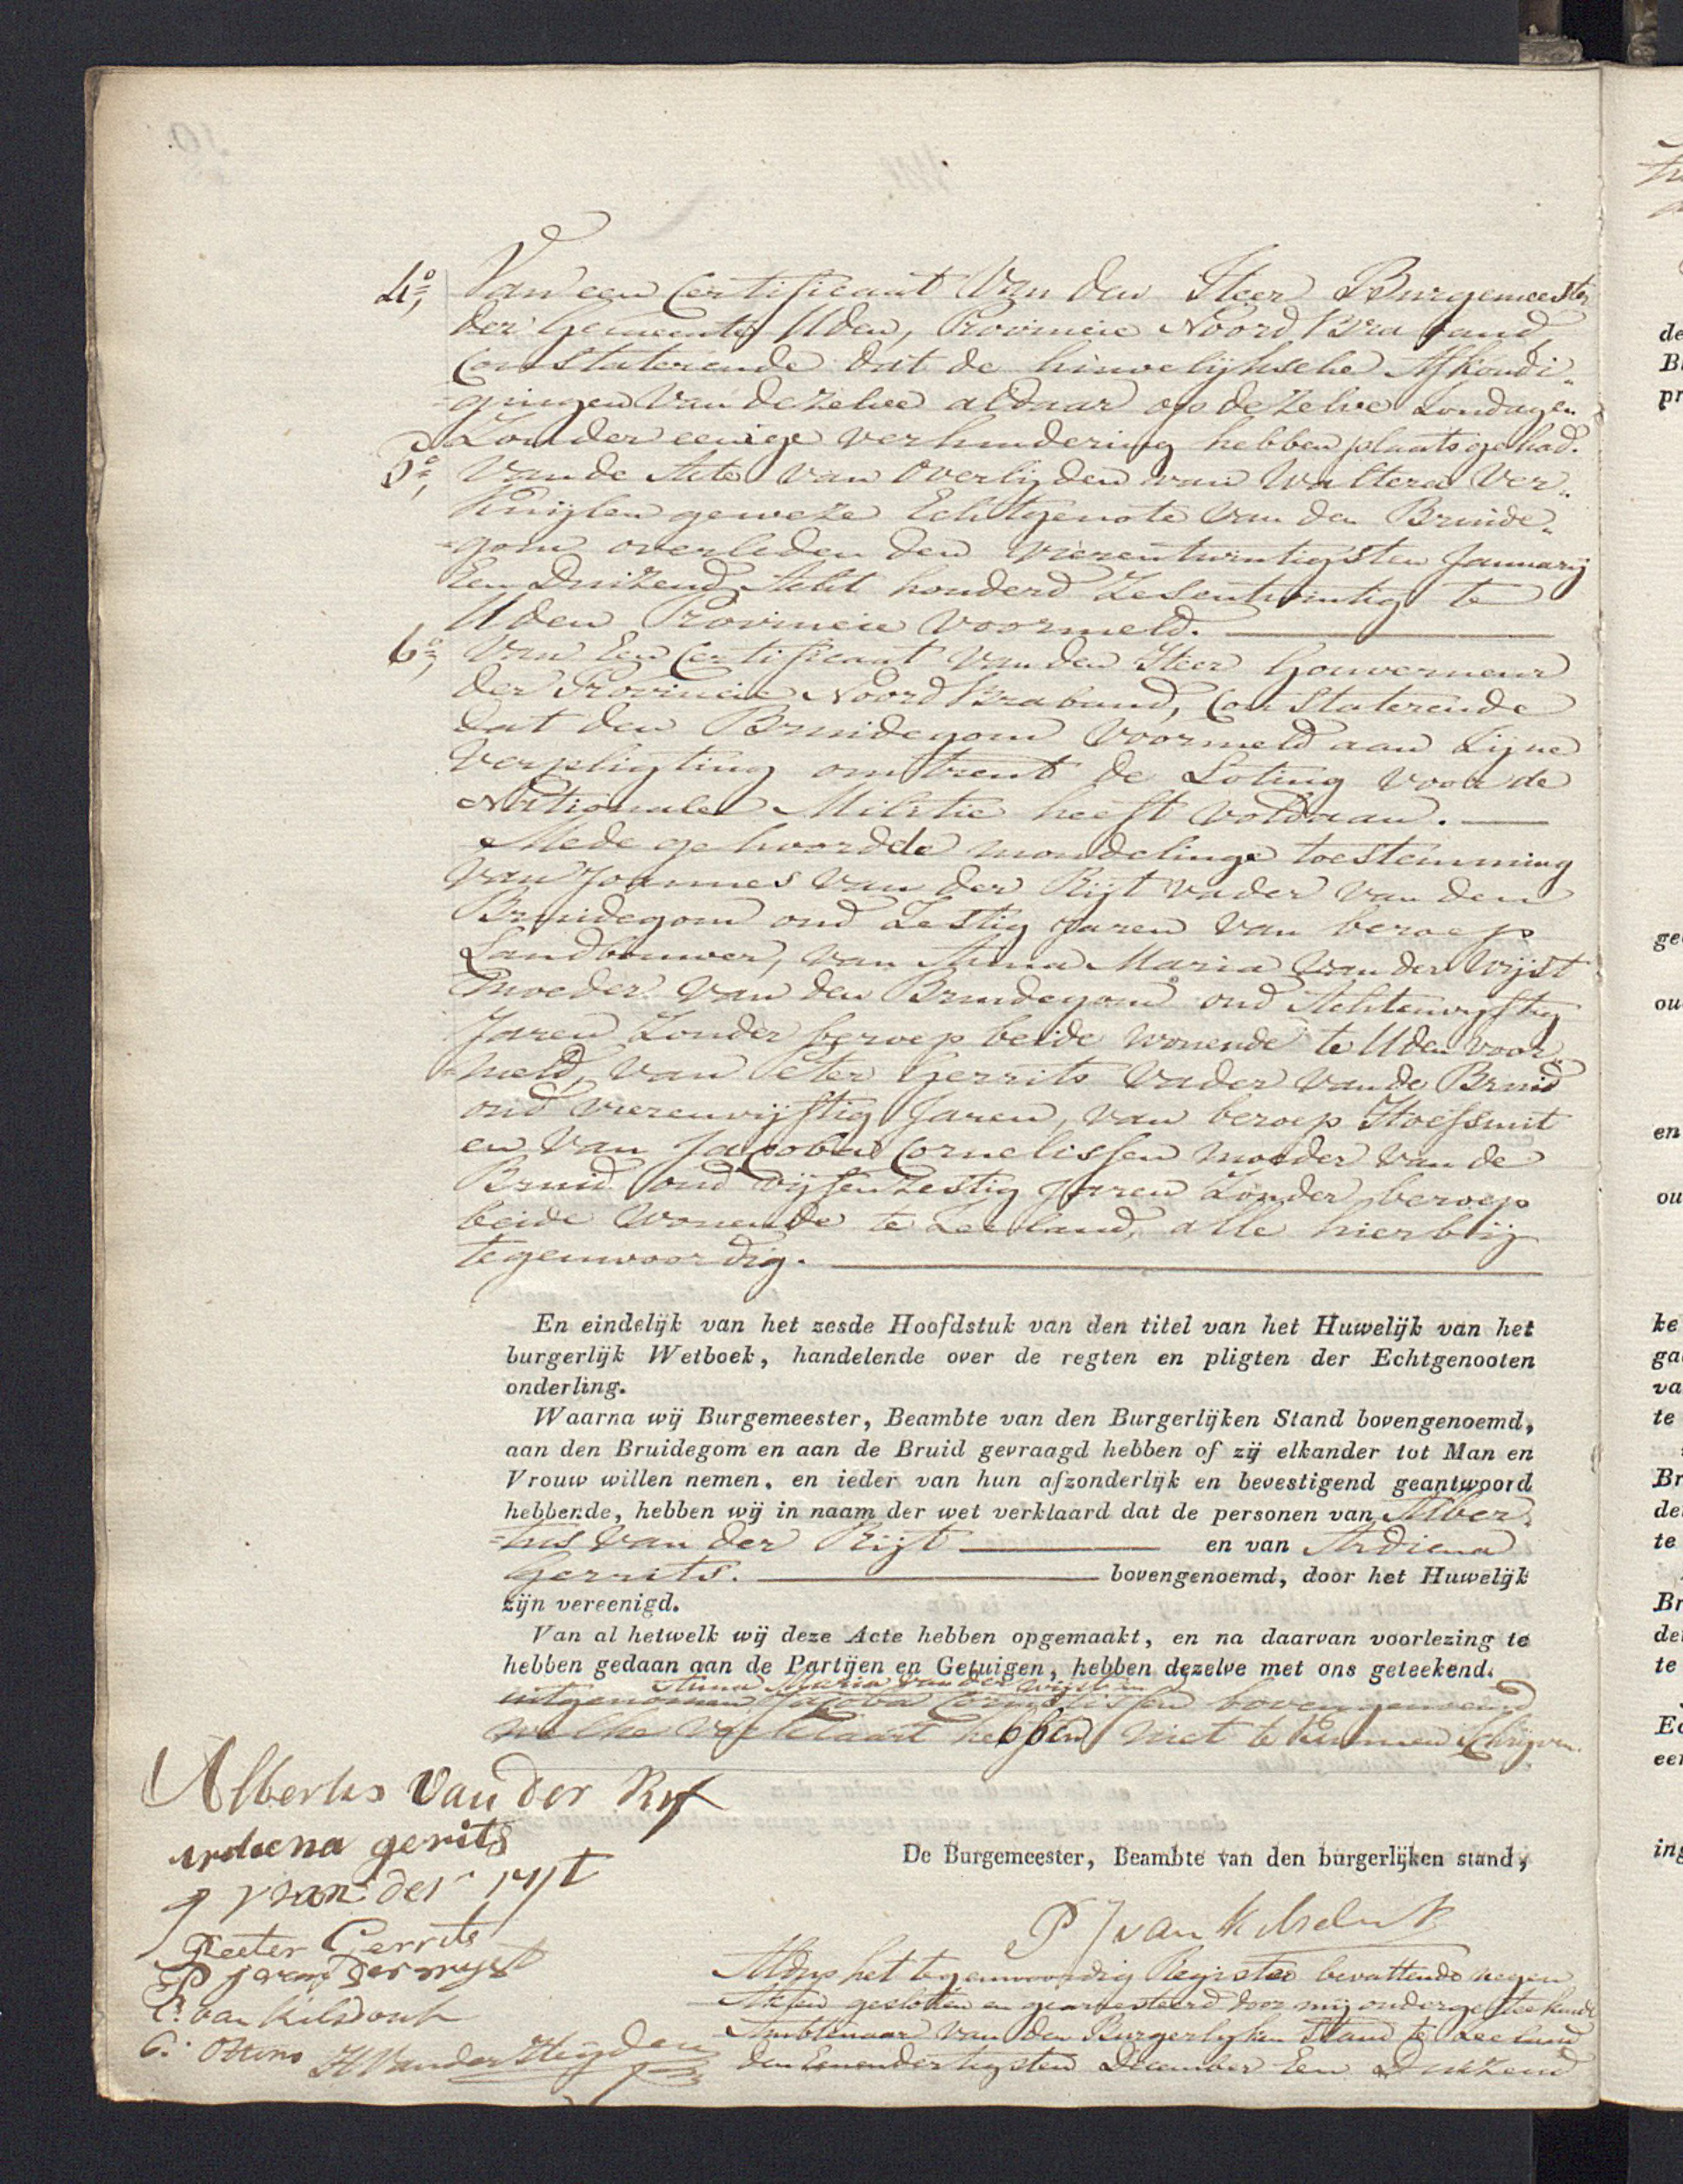 4o, Van een Certificaat Van den Heer Burgemeester
der Gemeente Uden, Provincie Noord Braband,
Constaterende dat de huwelijksche Afkondi„
=gingen Van dezelve aldaar op dezelve Zondagen
Zonder eenige verhindering hebben plaats gehad.
5o, Van de Acte van Overlijden van Waltera Ver„
Kuijlen geweze Echtgenote Van den Bruide„
=gom overleden den Vierentwintigsten Januarij
Een Duizend Acht honderd Zesentwintig te
Uden Provincie Voormeld.
6o, Van Een Certificaat van den Heer Gouverneur
der Provincie Noord Braband, Constaterende
dat den Bruidegom Voormeld aan Zijne
Verpligting omtrent de Loting voor de
Nationale Militie heeft voldaan.
Mede gehoord de mondelinge toestemming
Van Joannes Van der Rijt vader van den
Bruidegom oud Zestig Jaren van beroep
Landbouwer, van Anna Maria van der Wijst
moeder van den Bruidegom oud Achtenvyftig
Jaren Zonder beroep beide wonende te Uden voor„
=meld, van Peter Gerrits Vader van de Bruid
oud vierenvijftig Jaren, van beroep Hoefsmit
en van Jacoba Cornelissen moeder van de
Bruid oud Vijfenzestig Jaren Zonder beroep
beide Wonende te Zeeland, alle hier bij
tegenwoordig.
En eindelijk van het zesde Hoofdstuk van den titel van het Huwelijk van het
burgerlijk Wetboek, handelende over de regten en pligten der Echtgenooten
onderling.
Waarna wij Burgemeester, Beambte van den Burgerlijken Stand bovengenoemd,
aan den Bruidegom en aan de Bruid gevraagd hebben of zij elkander tot Man en
Vrouw willen nemen, en ieder van hun afzonderlijk en bevestigend geantwoord
hebbende, hebben wij in naam der wet verklaard dat de personen van Alber„
=tus Van der Rijt en van Ardiena
Gerrits. bovengenoemd, door het Huwelijk
zijn vereenigd.
Van al hetwelk wij deze Acte hebben opgemaakt, en na daarvan voorlezing te
hebben gedaan aan de Partijen en Getuigen, hebben dezelve met ons geteekend.
Anna Maria van der Wijst en
uitgenomen Jacoba Cornelissen bovengenoemd
welke Verklaart hebben niet te kunnen Schrijven.
Albertus Van der Ryt
ardiena gerits
J van der rijt
Peeter Gerrits
P J van der wyst
C. van Kilsdonk
C: Ottens
H Van der Heyden
De Burgemeester, Beambte van den burgerlijken stand,
P J van Kilsdonk
Aldus het tegenwoordig Register bevattende negen
Akten gesloten en gearresteerd door mij ondergeteekende
Ambtenaar van den Burgerlyken Stand te Zeeland
den Eenendertigsten December Een Duizend